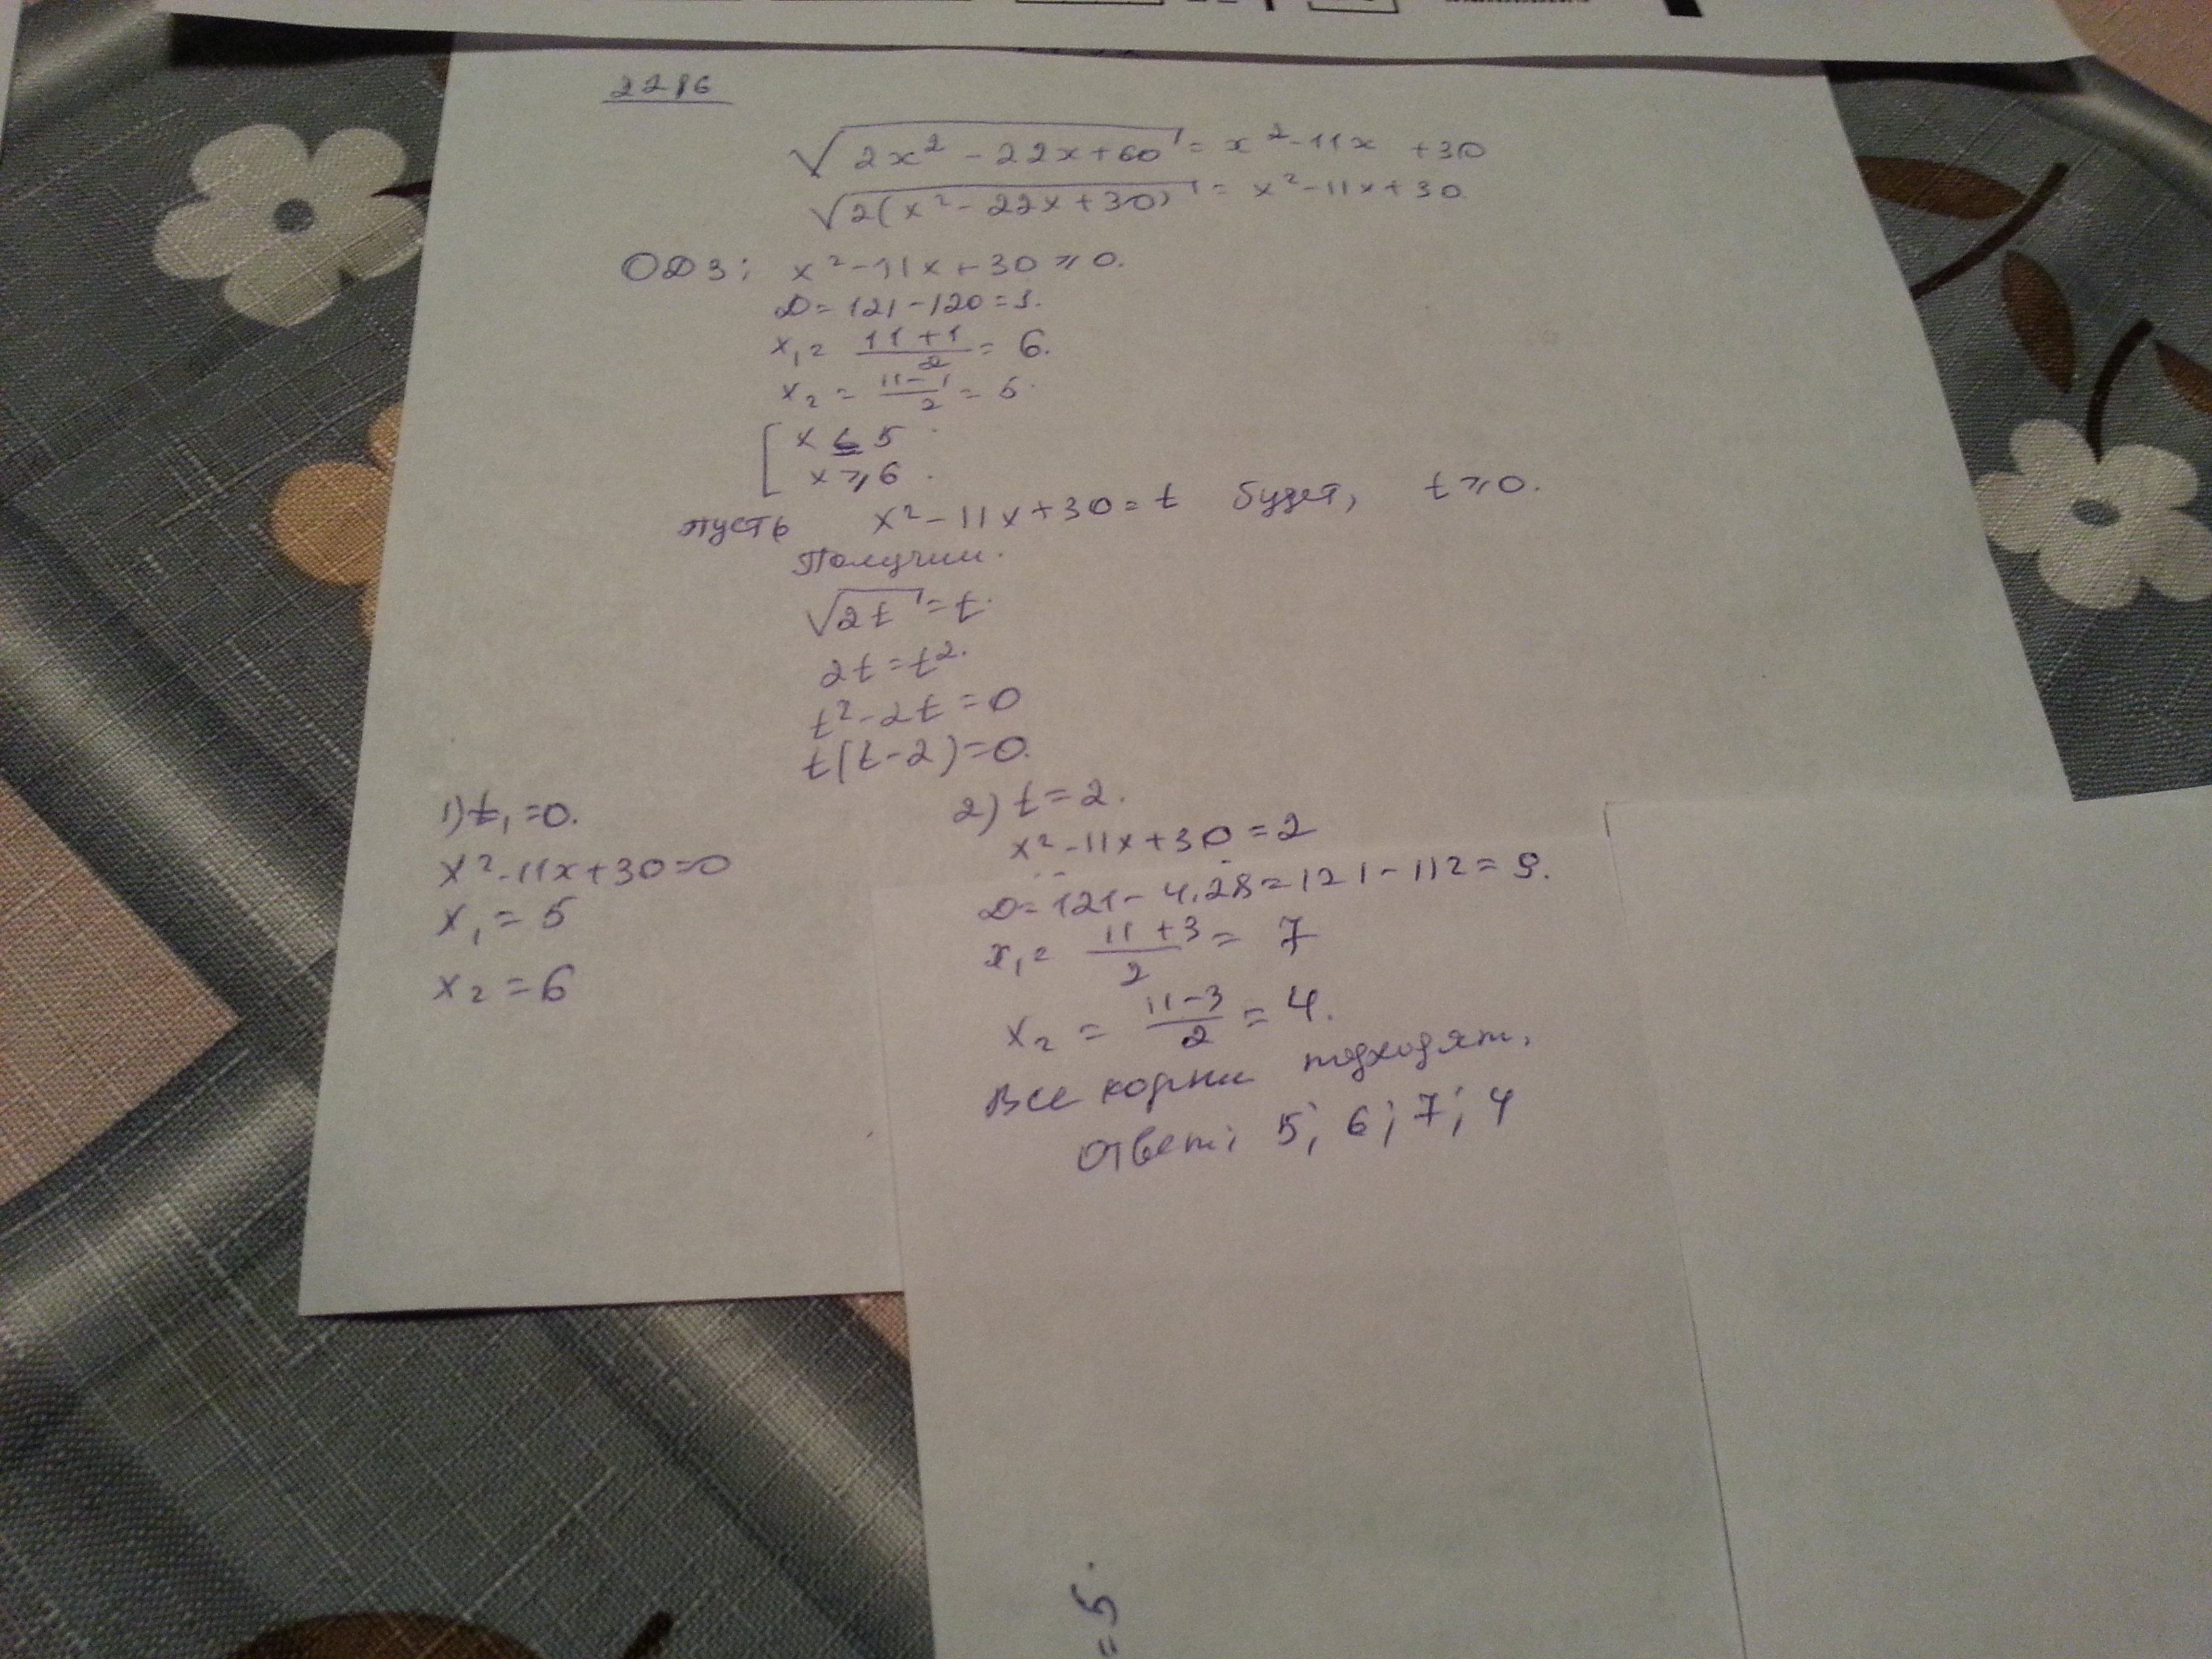 2216
√2x² - 22x + 60 = x² - 11x + 30
√2(x² - 22x + 30) = x² - 11x + 30
ОДЗ: x² - 11x + 30 ≥ 0.
D = 121 - 120 = 1.
x₁ = (11 + 1)/2 = 6.
x₂ = (11 - 1)/2 = 5.
[ x ≤ 5
x ≥ 6.
пусть x² - 11x + 30 = t будет, t ≥ 0.
Получим.
√2t = t.
2t = t².
t² - 2t = 0
t(t - 2) = 0.
1) t₁ = 0.
x² - 11x + 30 = 0
x₁ = 5
x₂ = 6
2) t = 2.
x² - 11x + 30 = 2
D = 121 - 4.28 = 121 - 112 = 9.
x₁ = (11 + 3)/2 = 7
x₂ = (11 - 3)/2 = 4.
Все корни подходят.
Ответ: 5; 6; 7; 4
= 5.